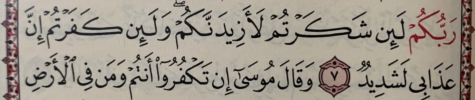 رَبُّكُمْ لَئِن شَكَرْتُمْ لَأَزِيدَنَّكُمْ ۖ وَلَئِن كَفَرْتُمْ إِنَّ
عَذَابِى لَشَدِيدٌ ٧ وَقَالَ مُوسَىٰٓ إِن تَكْفُرُوٓا۟ أَنتُمْ وَمَن فِى ٱلْأَرْضِ